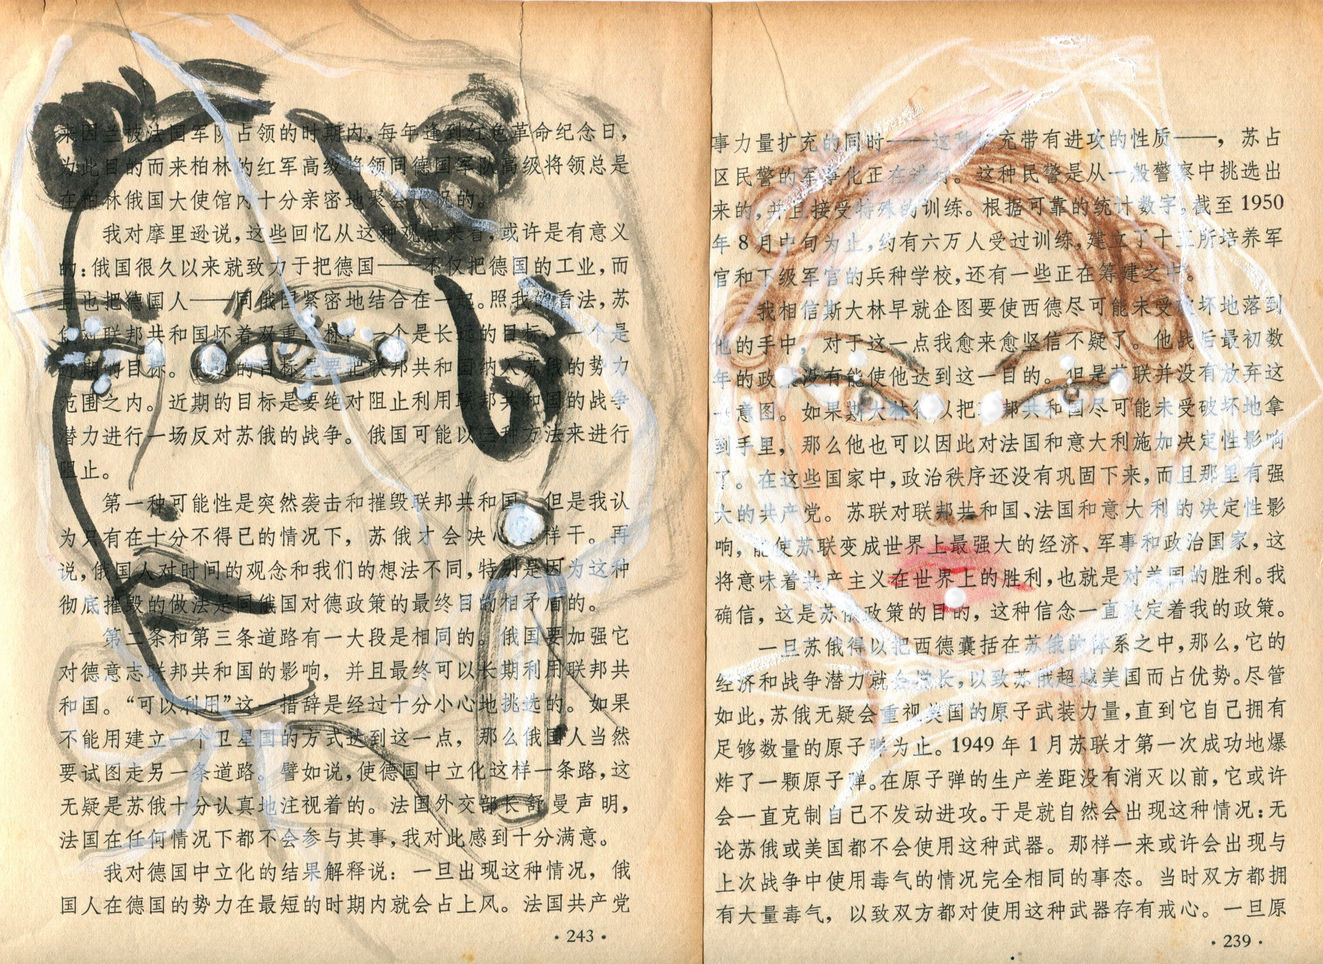 来因兰被法国军队占领的时期内,每年逢到红色革命纪念日,
为此目的而来柏林的红军高级将领同德国军队高级将领总是
在柏林俄国大使馆内十分亲密地聚会庆祝的。
我对摩里逊说,这些回忆从这种观点来看,或许是有意义
的:俄国很久以来就致力于把德国——不仅把德国的工业,而
且也把德国人——同俄国紧密地结合在一起。照我的看法,苏
俄对联邦共和国怀着双重目标:一个是长远的目标,一个是
近期的目标。长远的目标是要把联邦共和国纳入苏俄的势力
范围之内。近期的目标是要绝对阻止利用联邦共和国的战争
潜力进行一场反对苏俄的战争。俄国可能以三种方法来进行
阻止。
第一种可能性是突然袭击和摧毁联邦共和国。但是我认
为只有在十分不得已的情况下,苏俄才会决心这样干。再
说,俄国人对时间的观念和我们的想法不同,特别是因为这种
彻底摧毁的做法是同俄国对德政策的最终目的相矛盾的。
第二条和第三条道路有一大段是相同的。俄国要加强它
对德意志联邦共和国的影响,并且最终可以长期利用联邦共
和国。“可以利用”这一措辞是经过十分小心地挑选的。如果
不能用建立一个卫星国的方式达到这一点,那么俄国人当然
要试图走另一条道路。譬如说,使德国中立化这样一条路,这
无疑是苏俄十分认真地注视着的。法国外交部长舒曼声明,
法国在任何情况下都不会参与其事,我对此感到十分满意。
我对德国中立化的结果解释说:一旦出现这种情况,俄
国人在德国的势力在最短的时期内就会占上风。法国共产党
·243·
事力量扩充的同时——这种扩充带有进攻的性质——,苏占
区民警的军事化正在进行。这种民警是从一般警察中挑选出
来的,并且接受特殊的训练。根据可靠的统计数字,截至1950
年8月中旬为止,约有六万人受过训练,建立了十三所培养军
官和下级军官的兵种学校,还有一些正在筹建之中。
我相信斯大林早就企图要使西德尽可能未受破坏地落到
他的手中。对于这一点我愈来愈坚信不疑了。他战后最初数
年的政策没有能使他达到这一目的。但是苏联并没有放弃这
一意图。如果斯大林可以把联邦共和国尽可能未受破坏地拿
到手里,那么他也可以因此对法国和意大利施加决定性影响
了。在这些国家中,政治秩序还没有巩固下来,而且那里有强
大的共产党。苏联对联邦共和国、法国和意大利的决定性影
响,能使苏联变成世界上最强大的经济、军事和政治国家,这
将意味着共产主义在世界上的胜利,也就是对美国的胜利。我
确信,这是苏俄政策的目的,这种信念一直决定着我的政策。
一旦苏俄得以把西德囊括在苏俄的体系之中,那么,它的
经济和战争潜力就会增长,以致苏俄超越美国而占优势。尽管
如此,苏俄无疑会重视美国的原子武装力量,直到它自己拥有
足够数量的原子弹为止。1949年1月苏联才第一次成功地爆
炸了一颗原子弹。在原子弹的生产差距没有消灭以前,它或许
会一直克制自己不发动进攻。于是就自然会出现这种情况:无
论苏俄或美国都不会使用这种武器。那样一来或许会出现与
上次战争中使用毒气的情况完全相同的事态。当时双方都拥
有大量毒气,以致双方都对使用这种武器存有戒心。一旦原
·239·